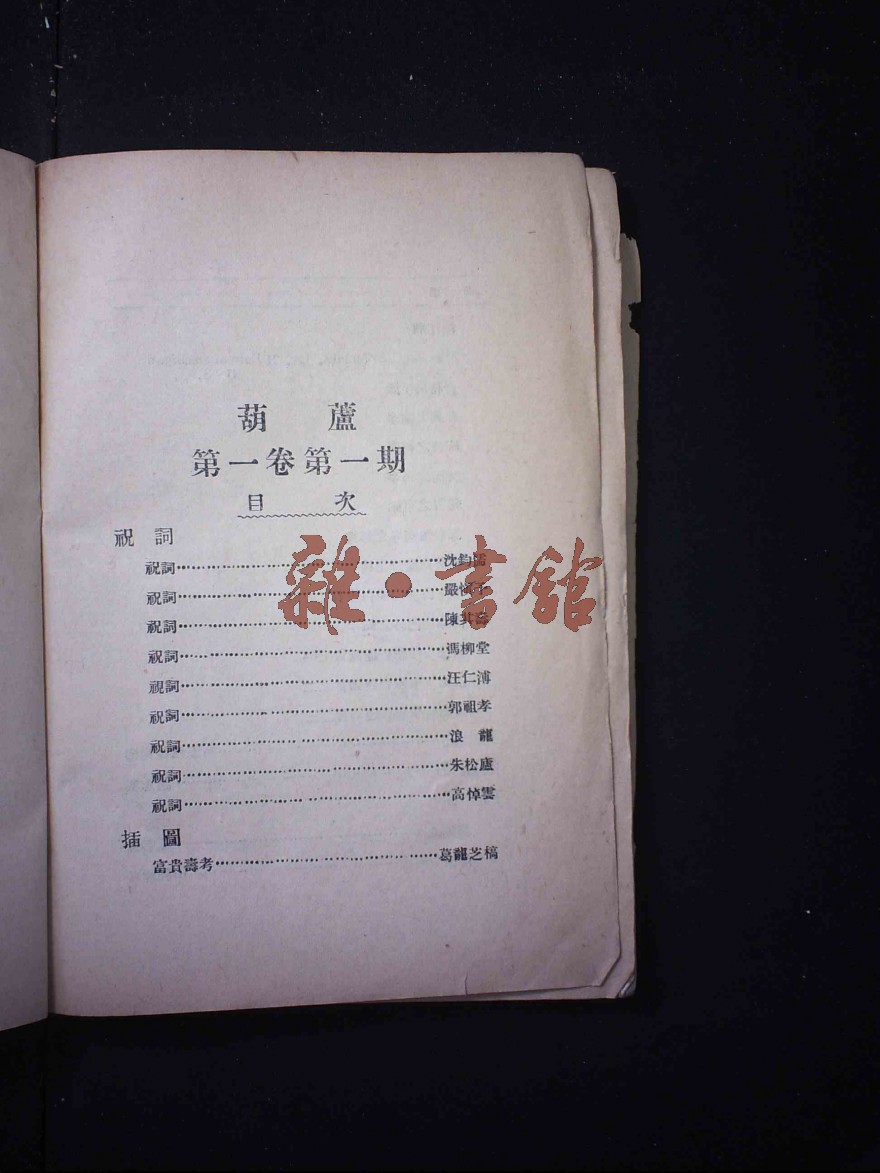 葫蘆
第一卷第一期
目次
祝詞
祝詞…………沈鈞儒
祝詞…………嚴
祝詞…………陳其
祝詞…………馮柳堂
祝詞…………汪仁溥
祝詞…………郭祖孝
祝詞…………浪龍
祝詞…………朱松廬
祝詞…………高悼雲
插圖
富貴壽考…………葛龍芝橋
雜·書館